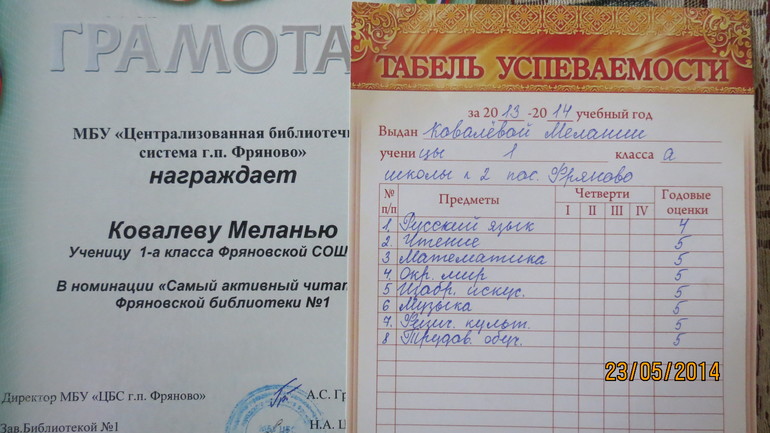 ГРАМОТА
МБУ «Централизованная библиотечн
система г.п. Фряново»
награждает
Ковалеву Меланью
Ученицу 1-а класса Фряновской СОШ
В номинации «Самый активный читат
Фряновской библиотеки №1
Директор МБУ «ЦБС г.п. Фряново» А.С. Гр
Зав.Библиотекой №1 Н.А. Ц
ТАБЕЛЬ УСПЕВАЕМОСТИ
за 2013-2014 учебный год
Выдан Ковалёвой Мелании
ученицы 1 класса а
школы № 2 пос. Фряново
№ п/п Предметы Четверти Годовые оценки
I II III IV
1. Русский язык 4
2. Чтение 5
3 Математика 5
4 Окр. мир 5
5 Изобр. искус. 5
6 Музыка 5
7. Физич. культ. 5
8 Трудов. обуч. 5
23/05/2014